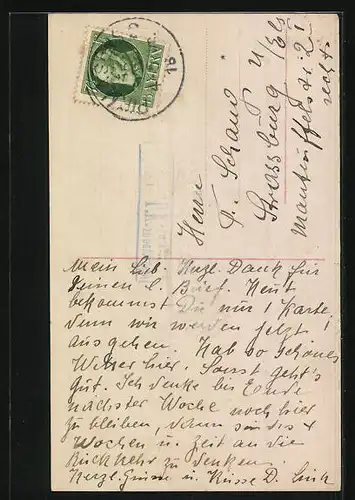 BAYERN
Herrn
P. Schaub
Strassburg i/Els
Manteuffelstr. 21
rechts
Mein Lieb. Herzl. Dank für
Deinen l. Brief. Heut
bekommst Du nur 1 Karte,
denn wir werden jetzt
ausgehen. Hab so schönes
Wetter hier. Sonst geht's
gut. Ich denke bis Ende
nächster Woche noch hier
zu bleiben, dann sind's 4
Wochen u. Zeit an die
Rückkehr zu denken.
Herzl. Grüsse u. Küsse D.